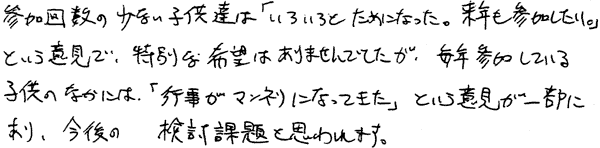 参加回数の少ない子供達は「いろいろとためになった。来年も参加したい。」
という意見で、特別な希望はありませんでしたが、毎年参加している
子供のなかには、「行事がマンネリになってきた」という意見が一部に
あり、今後の 検討課題と思われます。